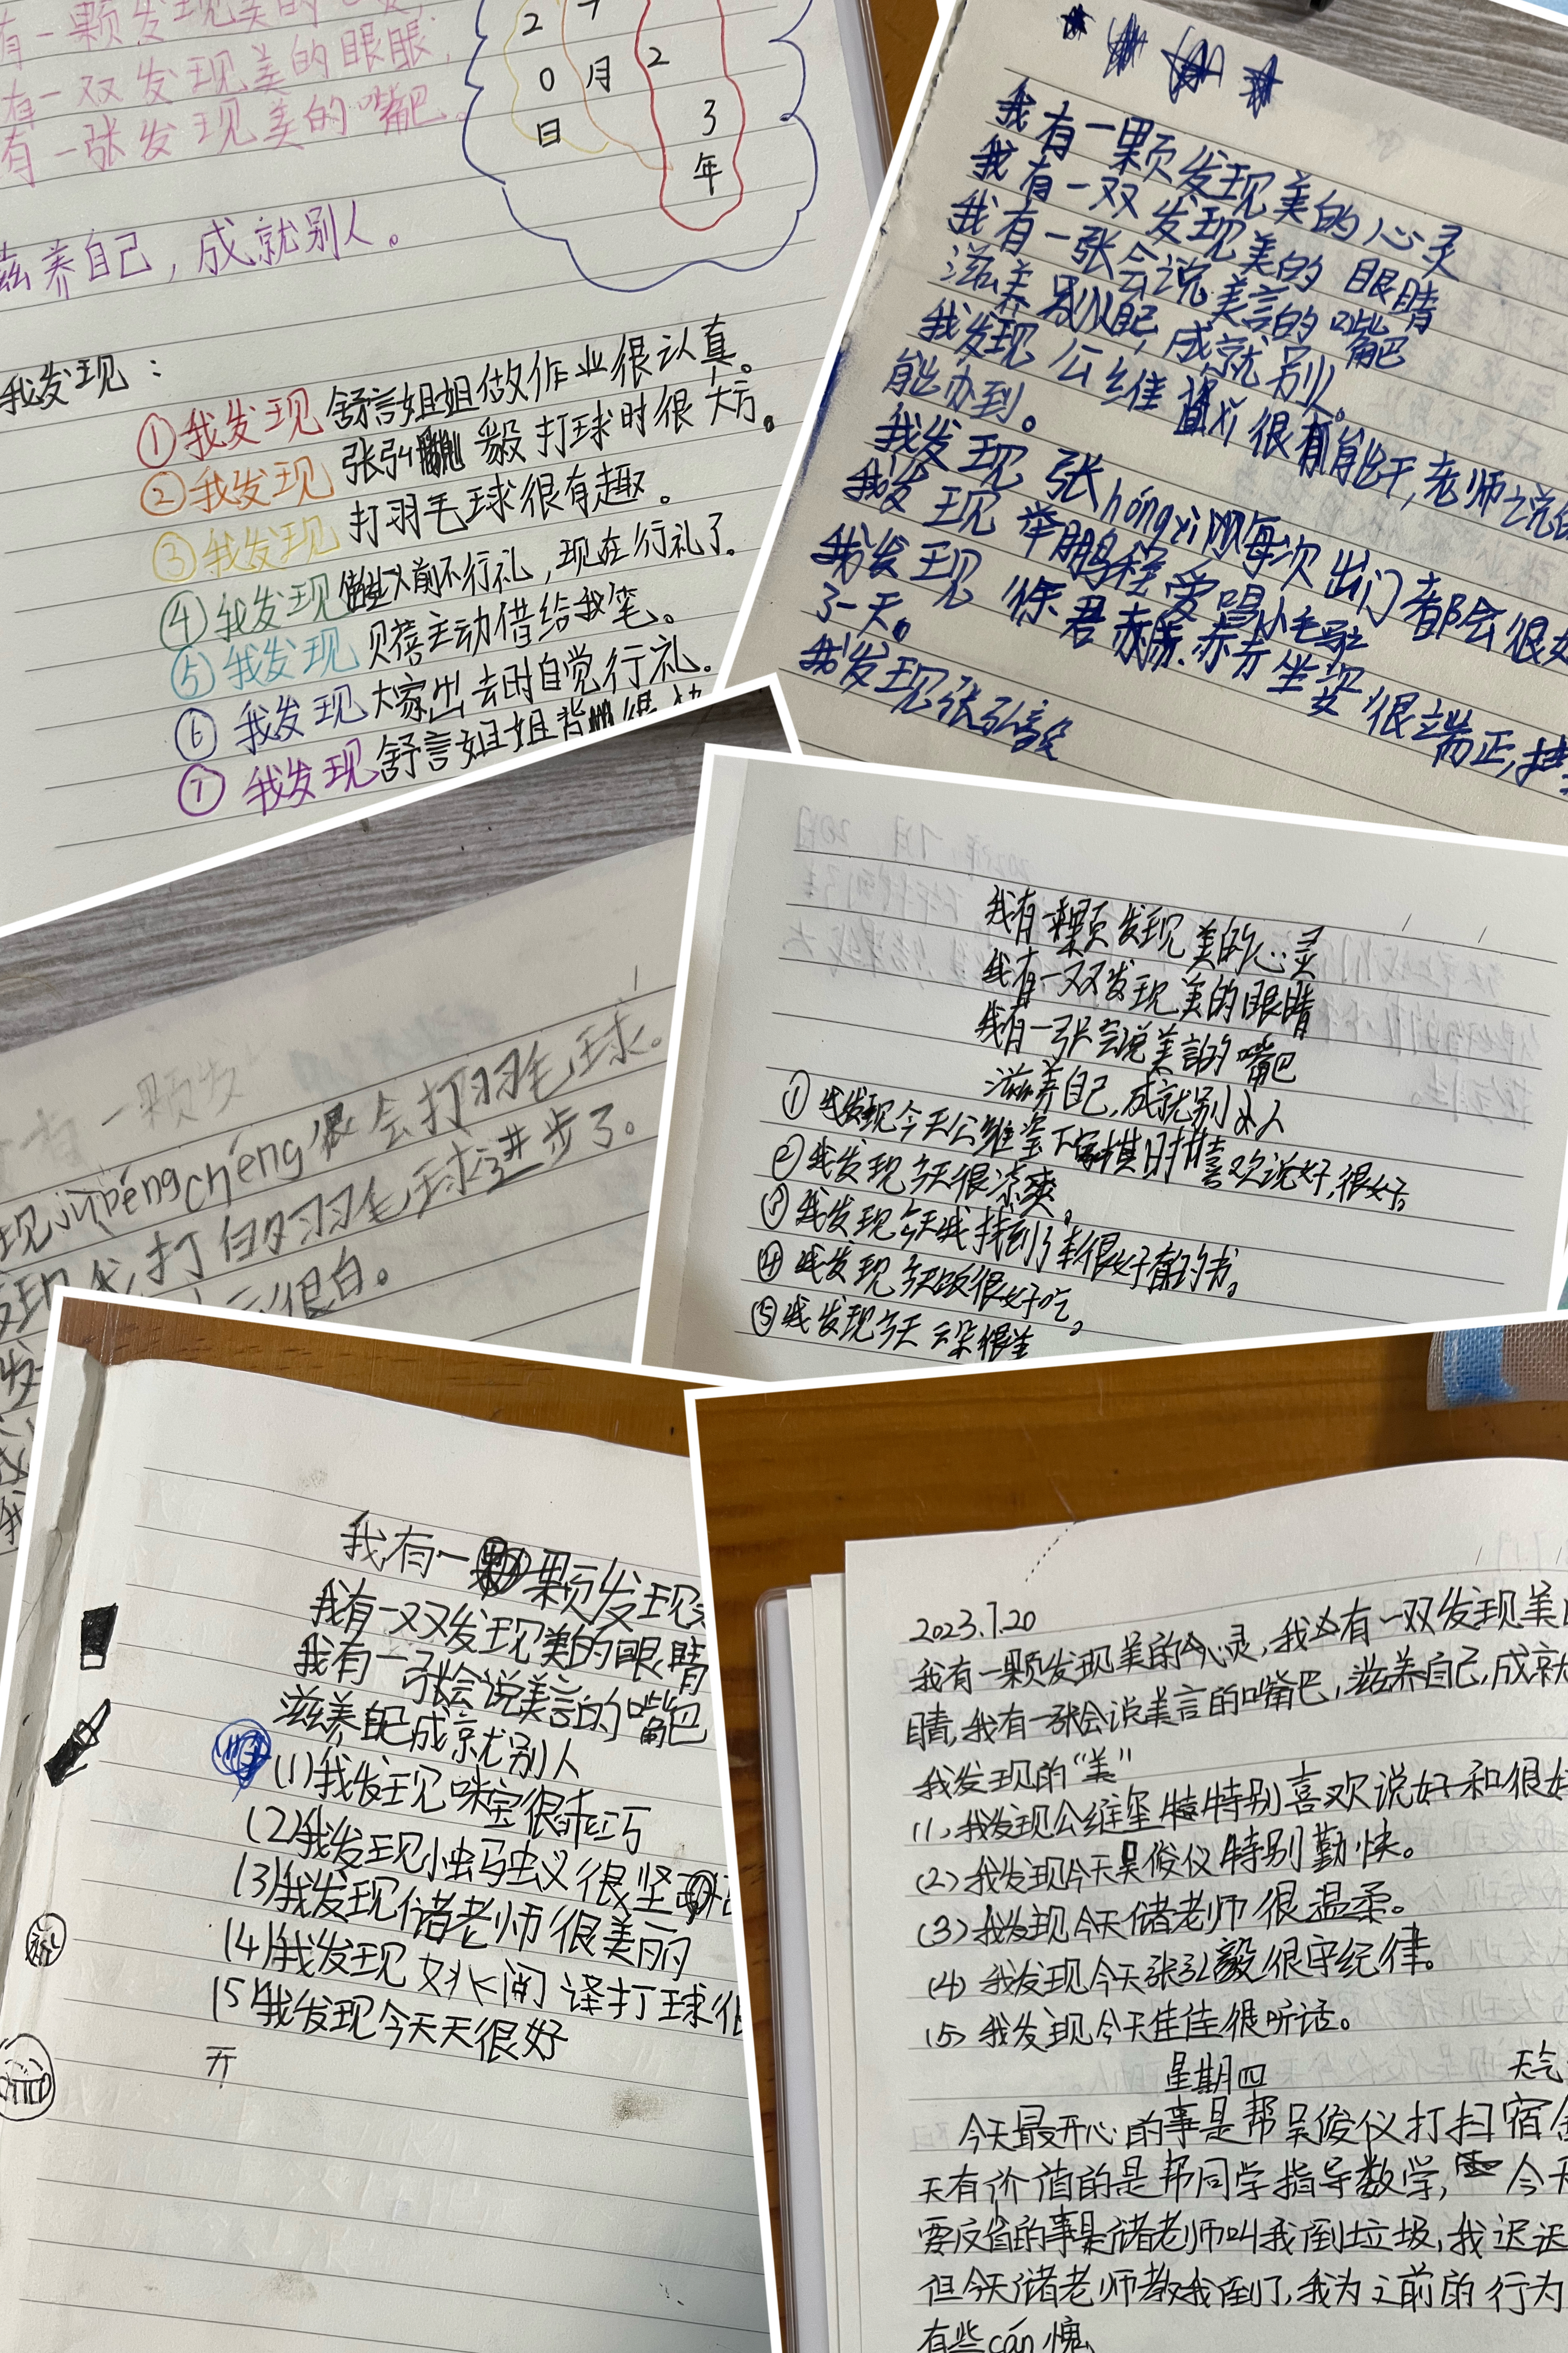 有一颗发现美的心灵,
有一双发现美的眼眼,
有一张发现美的嘴巴。
2 7 2
0 月 3
日 年
滋养自己,成就别人。
我发现:
①我发现 舒言姐姐做作业很认真。
②我发现 张弘毅打球时很大方。
③我发现 打羽毛球很有趣。
④我发现 以前不行礼,现在行礼了。
⑤我发现 贝蓓主动借给我笔。
⑥我发现 大家出去时自觉行礼。
⑦我发现 舒言姐姐背
我有一颗发现美的心灵
我有一双发现美的眼睛
我有一张会说美言的嘴巴
滋养自己,成就别人。
我发现公维玺xǐ很有能干,老师说
能办到。
我发现张hóngyì每次出门都会很
我发现 鹏程爱喝小毛驴
我发现徐君赤 坐姿很端正,
了一天。
我发现张弘毅
有一颗发
现jǔpéngchéng很会打羽毛球。
发现我打的羽毛球进步了。
很白。
我有一颗发现美的心灵
我有一双发现美的眼睛
我有一张会说美言的嘴巴
滋养自己,成就别人
①我发现今天公维玺下象棋时特喜欢说好,很好。
②我发现今天很凉爽。
③我发现今天我找到了本很好看的书。
④我发现今天饭很好吃。
⑤我发现今天云朵很
我有一颗发现
我有一双发现美的眼睛
我有一张会说美言的嘴巴
滋养自己成就别人
(1)我发现咪宝很乖巧
(2)我发现小蚂蚁很坚
(3)我发现储老师很美丽
(4)我发现姚阅译打球很
(5)我发现今天天很好
开
2023.7.20
我有一颗发现美的心灵,我有一双发现美的
睛,我有一张会说美言的嘴巴,滋养自己,成就
我发现的“美”
(1)我发现公维玺特别喜欢说好和很好
(2)我发现今天吴俊仪特别勤快。
(3)我发现今天储老师很温柔。
(4)我发现今天张弘毅很守纪律。
(5)我发现今天佳佳很听话。
星期四 天气
今天最开心的事是帮吴俊仪打扫宿舍
天有价值的是帮同学指导数学,今天
要反省的事是储老师叫我倒垃圾,我迟迟
但今天储老师教我倒了,我为之前的行为
有些cán愧